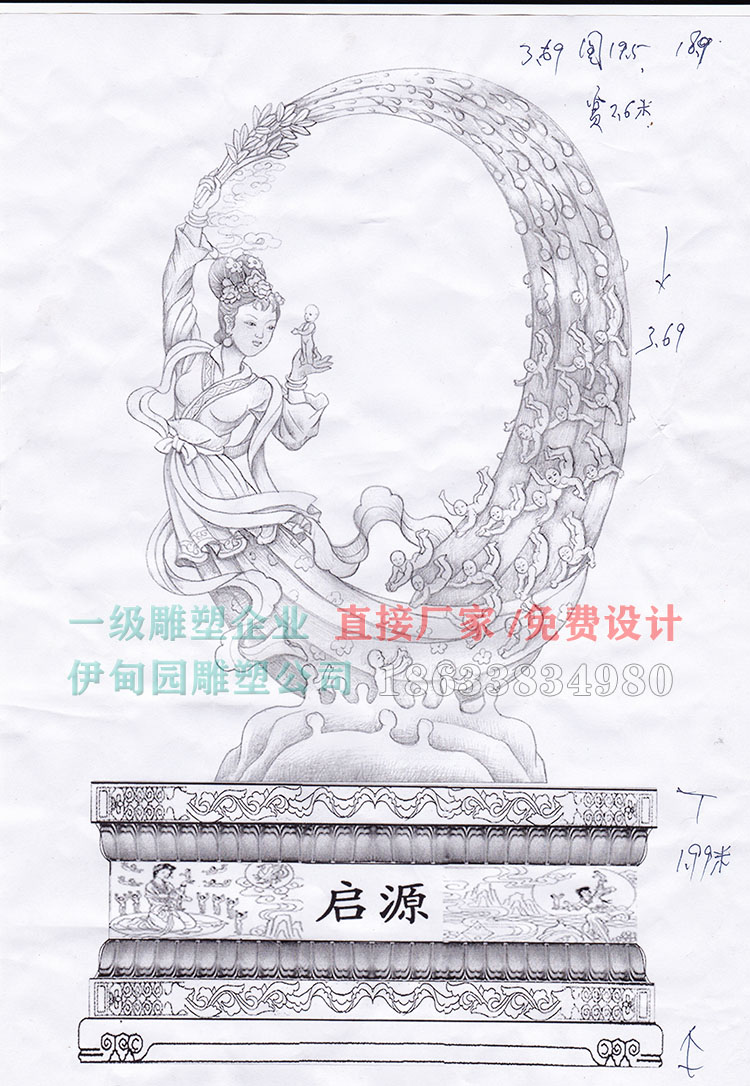 3.69 圈19.5 18.9
宽2.6米
3.69
一级雕塑企业 直接厂家/免费设计
伊甸园雕塑公司 18633834980
1.99米
启源